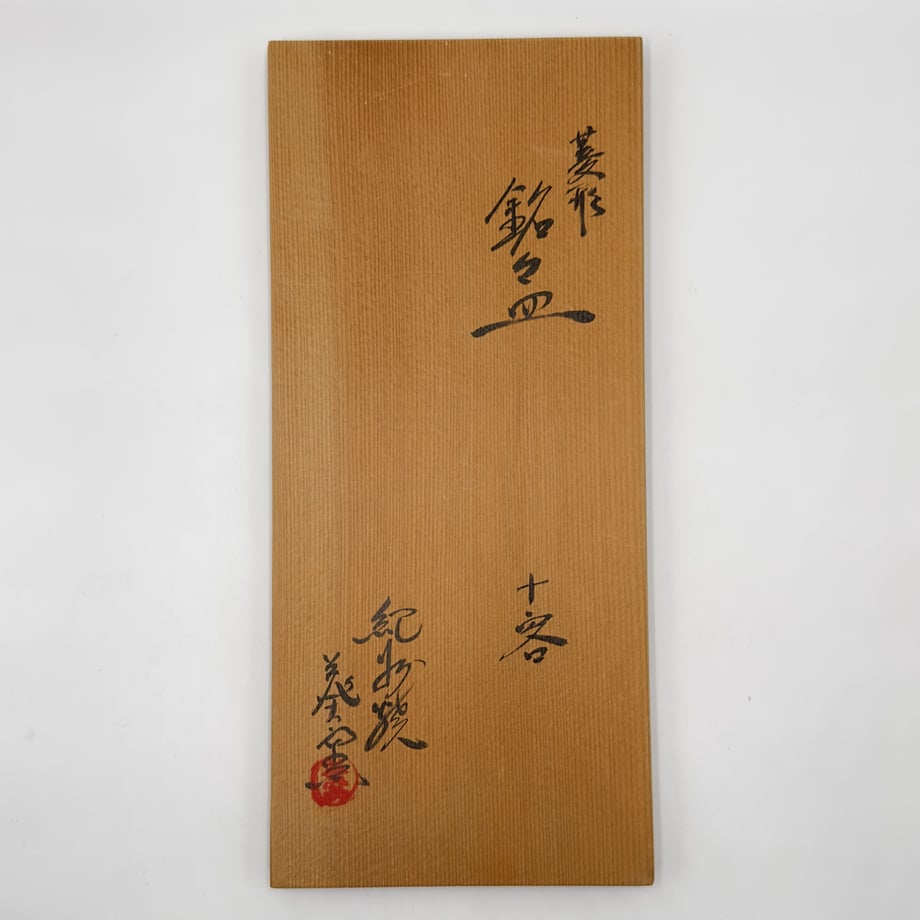 菱形
銘々皿
十客
紀州焼
葵窯